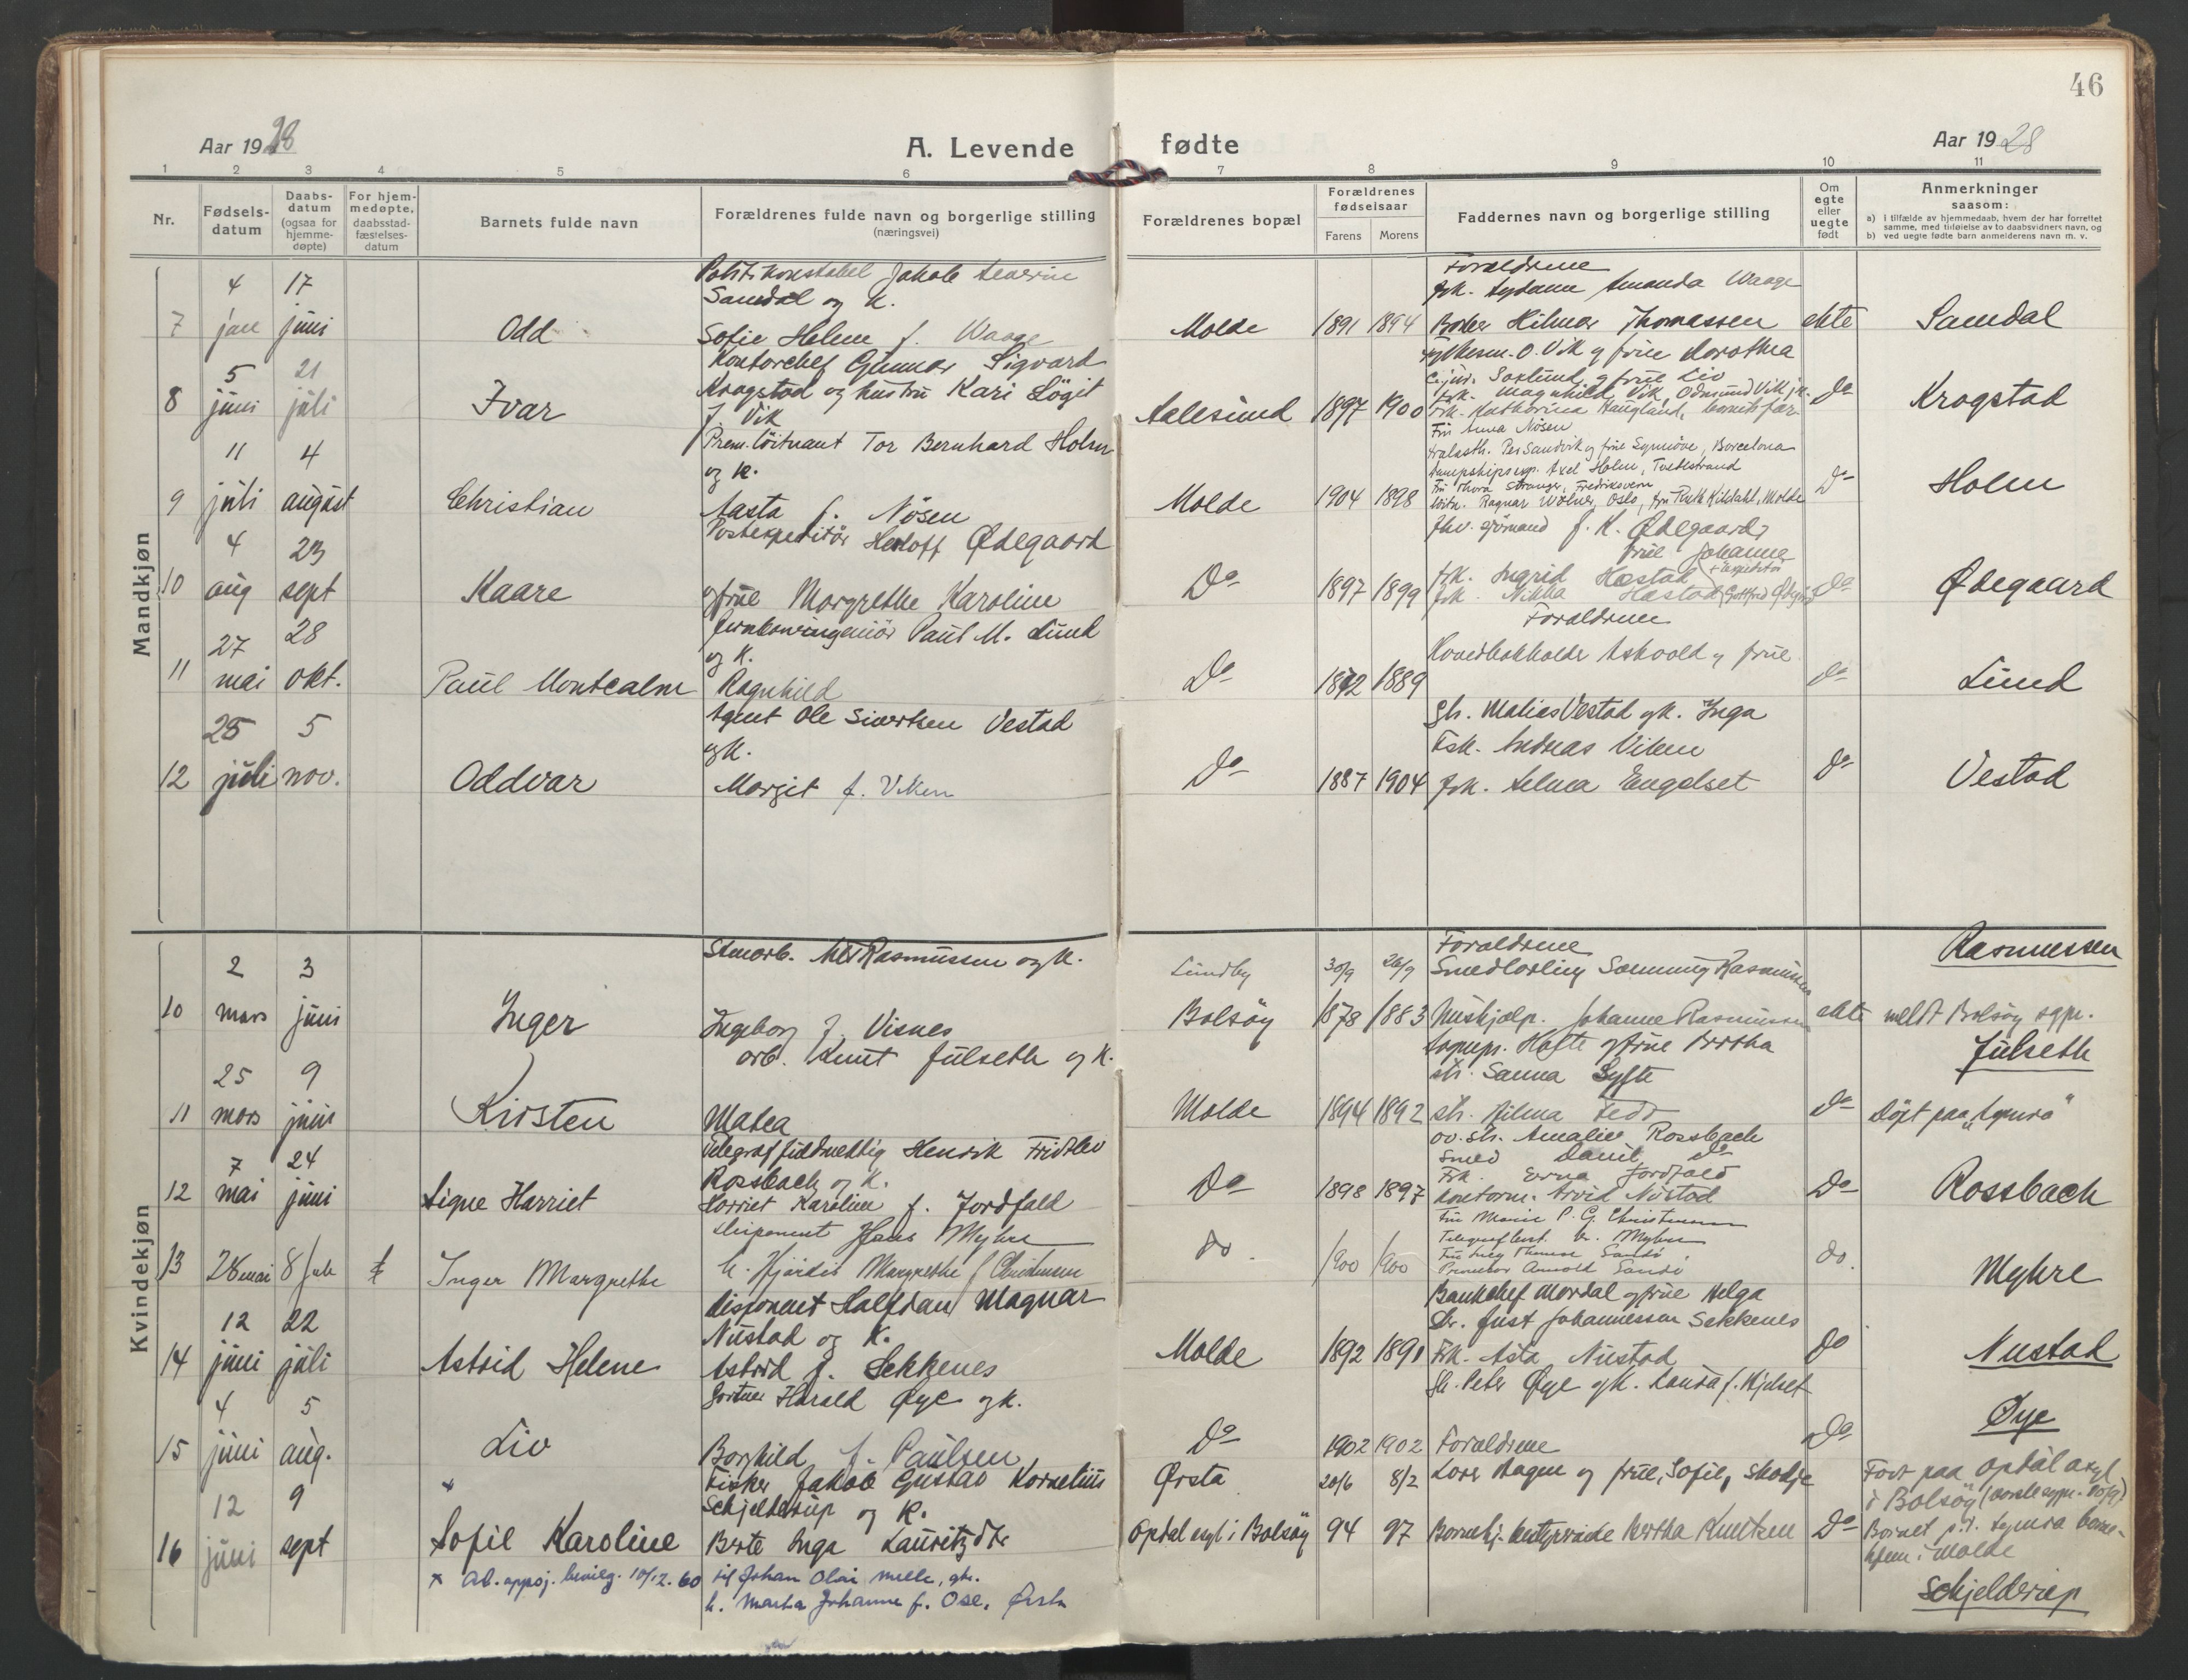 46
Aar 1928
A. Levende fødte
Aar 1928
1 2 3 4 5 6 7 8 9 10 11
Nr.
Fødsels-
datum
Daabs-
datum
(ogsaa for
hjemme-
døpte)
For hjem-
medøpte,
daabsstad-
fæstelses-
datum
Barnets fulde navn
Forældrenes fulde navn og borgerlige stilling
(næringsvei)
Forældrenes bopæl
Forældrenes
fødselsaar
Farens Morens
Faddernes navn og borgerlige stilling
Om
egte
eller
uegte
født
Anmerkninger
saasom:
a) i tilfælde av hjemmedaab, hvem der har forrettet
samme, med tilføielse av to daabsvidners navn, og
b) ved uegte fødte barn anmelderens navn m. v.
Mandkjøn
7
4 jan
17 juni
Odd
Politikonstabel Jakob Severin
Samdal og k.
Sofie Helene f. Waage
Molde
1891 1894
Forældrene
Frk. Amanda Waage
Hilmar Thomassen
ekte
Samdal
8
5 juni
21 juli
Ivar
Kontorchef Gunnar Sigvard
Krogstad og hustru Kari Lögit
f. Vik
Aalesund
1897 1900
O. Vik og frue Dorothea
og frue Liv
Frk. Magnhild Vik, Odmund Vik
Frk. Katharina Haugland, barnets far
do
Krogstad
9
11 juli
4 august
Christian
Prem. löitnant Tor Bernhard Holm
og k.
Aasta f. Nösen
Molde
1904 1898
Fru Anna Nösen
Per Sandvik og frue Synnöve, Barcelona
Axel Holm, Tvedestrand
Fru Thora Stranger, Fredriksvern
Löitn. Ragnar Wölner, Oslo, fru Ruth Kildahl, Molde
Do
Holm
10
4 aug
23 sept
Kaare
Postexpeditör Herloff Ødegaard
og frue Margrethe Karoline
Do
1897 1899
Fhv. sjömand J. K. Ødegaard
frue Johanne
frk. Ingrid Hæstad
frk. Hæstad
Do
Ødegaard
11
27 mai
28 okt.
Paul Montcalm
Paul M. Lund
og k.
Ragnhild
Do
1872 1889
Forældrene
Hovedbokholder Askvold og frue
do
Lund
12
25 juli
5 nov.
Oddvar
Agent Ole Sivertsen Vestad
og k.
Margit f. Viken
Do
1887 1904
Gb. Matias Vestad og k. Inga
Fisk. Andreas Viken
Frk. Selma Engelset
do
Vestad
Kvindekjøn
10
2 mars
3 juni
Inger
Stenarb. Rasmussen og k.
Ingeborg f. Visnes
Lundby
Bolsöy
30/9 1878
26/9 1883
Forældrene
Smedlærling Rasmussen
Hushjælp. Johanne Rasmussen
ekte
Rasmussen
meldt Bolsöy sgpr.
11
25 mars
9 juni
Kirsten
arb. Knut Julseth og k.
Matea
Molde
1894 1892
Hofte og frue Bertha
str. Sanna Syfte
str. Hilma
do
Julseth
döpt paa "Symra"
12
7 mai
24 juni
Signe Harriet
Telegraffuldmektig Henrik Fridtlev
Rossbach og k.
Harriet Karoline f. Jordfald
Do
1898 1897
ov. str. Amalie Rossbach
Smed Daniel do
Frk. Erna Jordfald
Kontorm. Arvid Nustad
Do
Rossbach
13
28 mai
8 juli
Inger Margrethe
Disponent Hans Myhre
h. Hjördis Margrethe f. Christensen
do.
1900 1900
Fru Marie P. G. Christensen
Telegrafbest. Myhre
Fru Sandö
Arnold Sandö
do.
Myhre
14
12 juni
22 juli
Astrid Helene
Disponent Halfdan Magnar
Nustad og k.
Astrid f. Sekkenes
Molde
1892 1891
Bankchef Mordal og frue Helga
Johannessen Sekkenes
Frk. Asta Nustad
do
Nustad
15
4 juni
5 aug.
Liv
Gartner Harald Øye og k.
Borghild f. Paulsen
Do
1902 1902
Gb. Peter Øye og k. Laura f. Hjelset
Forældrene
Do
Øye
16
12 juni
9 sept
x
Sofie Karoline
Fisker Jakob Gustav Kornelius
Schjelderup og k.
Berte Inga Lauritzdtr
Ørsta
Opdal asyl i Bolsöy
20/6 94
8/2 97
Hagen og frue, Sofie, Skodje
Barnehj. bestyrerinde Bertha Knutsen
Do
Født paa Opdal asyl
i Bolsöy
Barnet Symra barne-
hjem i Molde
Schjelderup
x Ad. appoj. bevilg. 10/12. 60 til Johan Olai Melle, gb.
h. Marta Johanne f. Ose, Ørsta